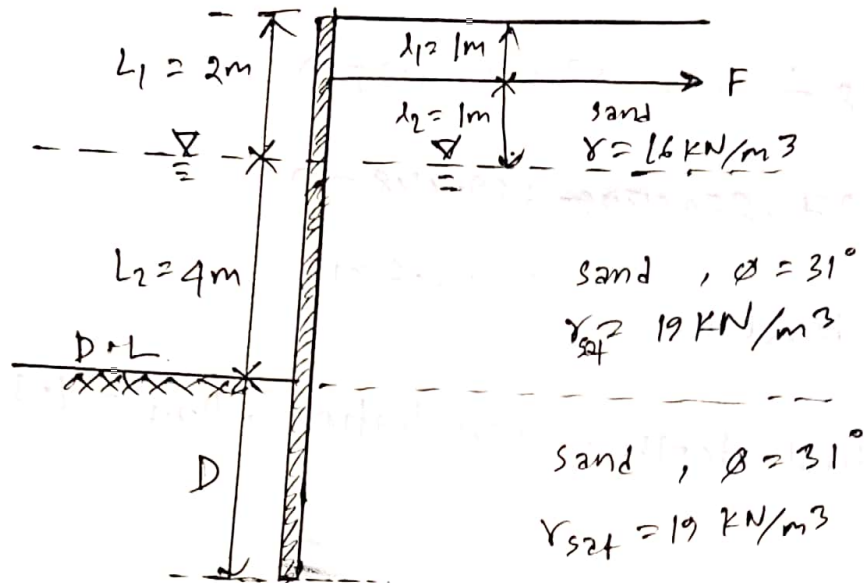 L1 = 2m
l1 = 1m
F
l2 = 1m
sand
γ = 16 KN/m3
L2 = 4m
sand , ø = 31°
γsat = 19 KN/m3
D.L
D
sand , ø = 31°
γsat = 19 KN/m3